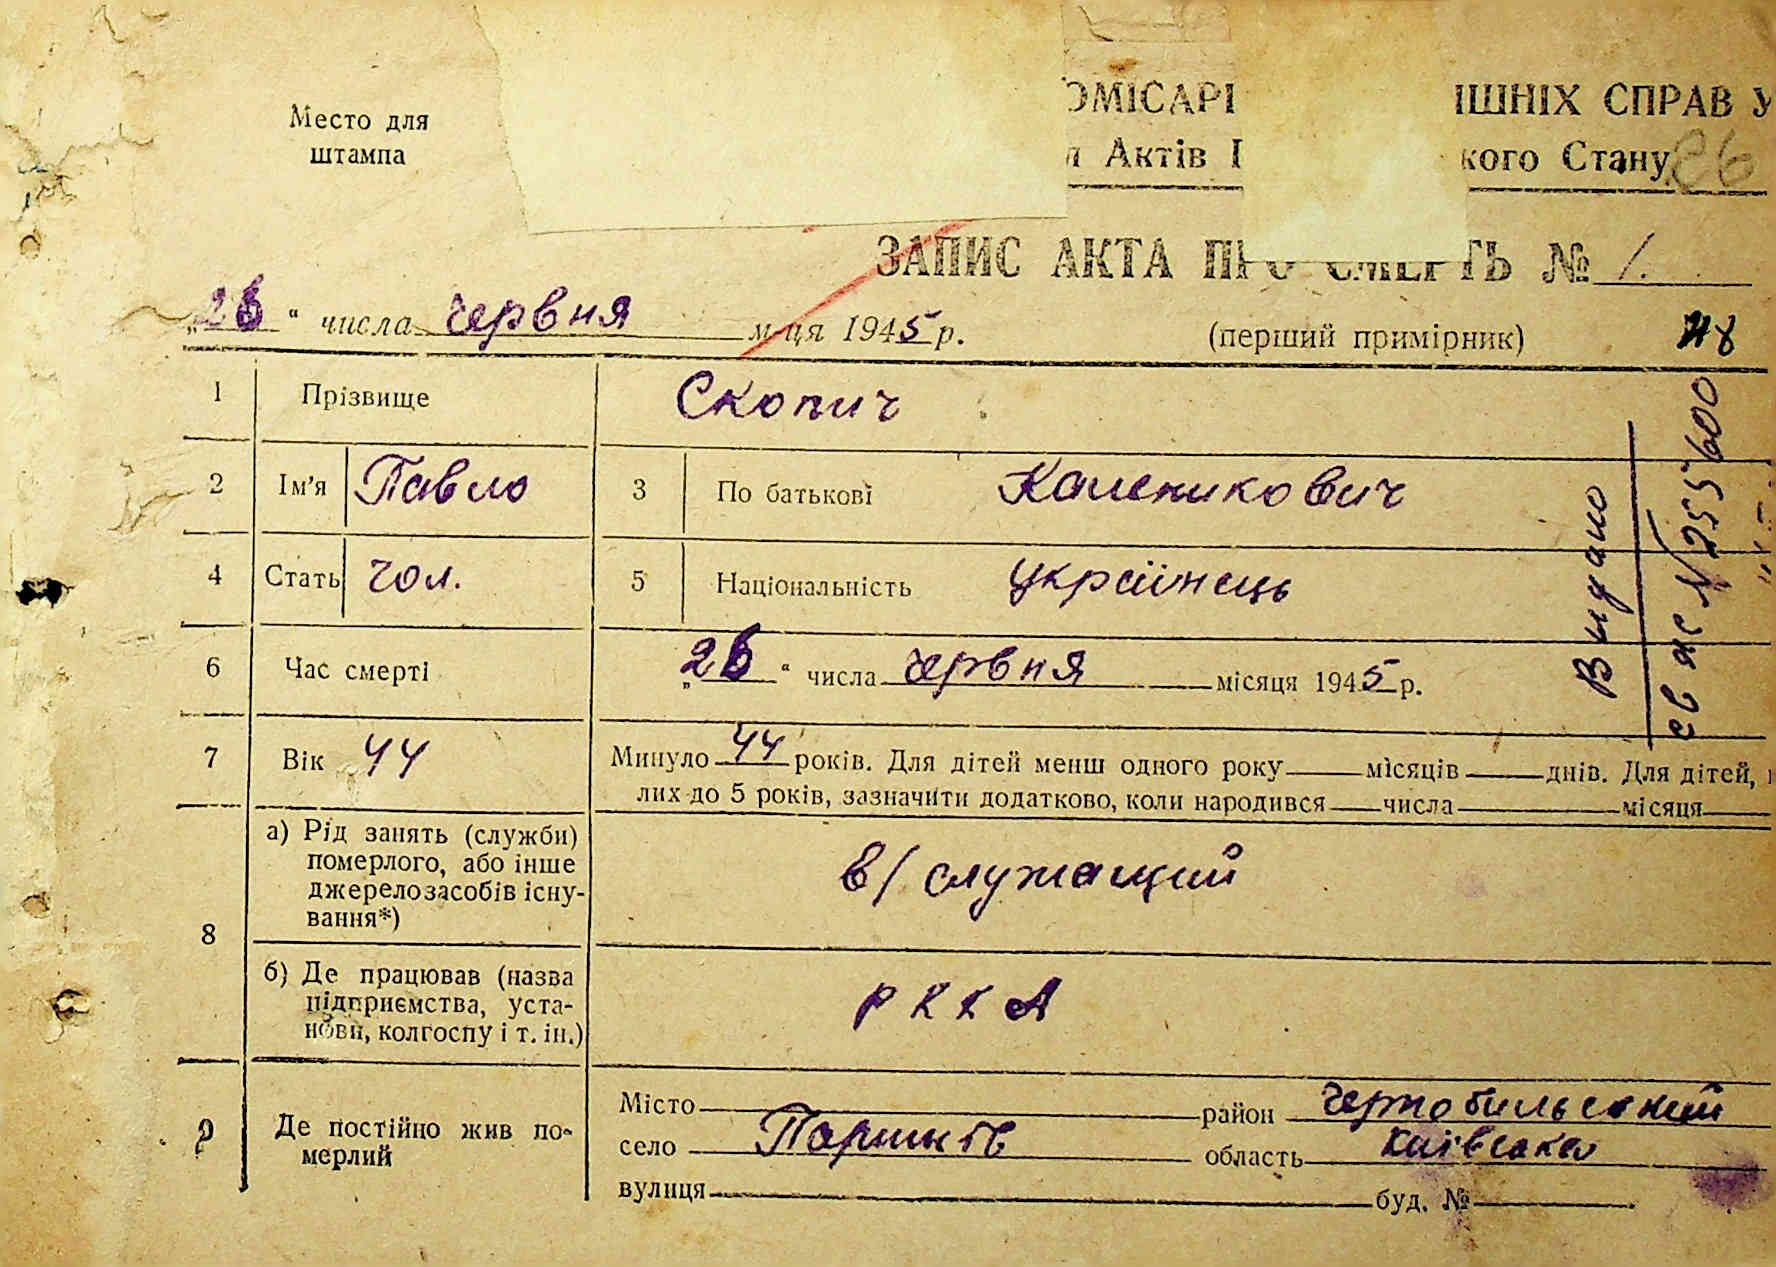 Место для
штампа
ОМІСАРІ ІШНІХ СПРАВ У
л Актів Г кого Стану 26
ЗАПИС АКТА ПРО СМЕРТЬ № 1.
„26“ числа червня м-ця 1945 р. (перший примірник)
1 Прізвище Скопич
2 Ім'я Павло 3 По батькові Каленикович
4 Стать чол. 5 Національність українець
6 Час смерті „26“ числа червня місяця 1945 р.
7 Вік 44 Минуло 44 років. Для дітей менш одного року місяців днів. Для дітей,
лих до 5 років, зазначити додатково, коли народився числа місяця
8 а) Рід занять (служби)
померлого, або інше
джерело засобів існу-
вання*)
в/служащий
б) Де працював (назва
підприємства, уста-
нови, колгоспу і т. ін.)
РККА
9 Де постійно жив по-
мерлий
Місто район Чернобильський
село Паришів область Київська
вулиця буд. №
Видано
св № 255600